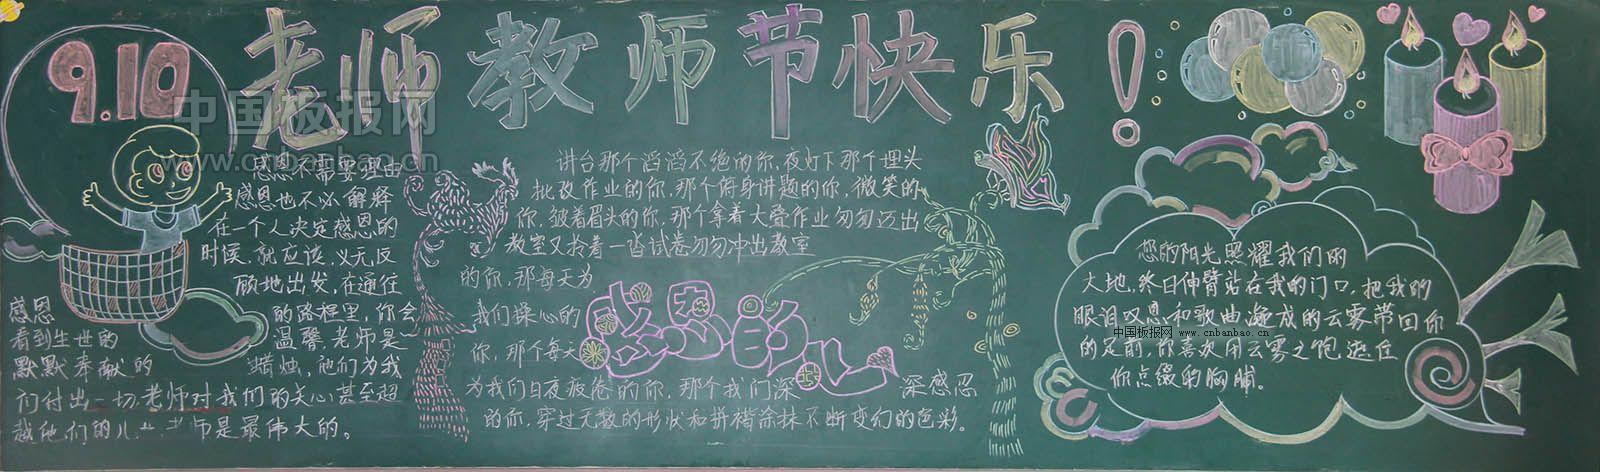 9.10
老师教师节快乐!
中国板报网
www.cnbanbao.cn
感恩不需要理由
感恩也不必解释
在一个人决定感恩的
时候,就应该,义无反
顾地出发,在通往
感恩的路程里,你会
看到生世的温馨,老师是
默默奉献的蜡烛,他们为我
们付出一切,老师对我们的关心甚至超
越他们的儿女,老师是最伟大的。
讲台那个滔滔不绝的你,夜灯下那个埋头
批改作业的你,那个俯身讲题的你,微笑的
你,皱着眉头的你,那个拿着大叠作业匆匆迈出
教室又拎着一沓试卷匆匆冲出教室
的你,那每天为
我们操心的
你,那个每天
为我们日夜疲倦的你,那个我们深深感忍
的你,穿过无数的形状和拼褙涂抹不断变幻的色彩。
感恩的心
您的阳光照耀我们的
大地,终日伸臂站在我的门口,把我的
眼泪叹息和歌曲凝成的云雾带回你
的足前,你喜欢用云雾之饱遮住
你点缀的胸脯。
中国板报网
www.cnbanbao.cn